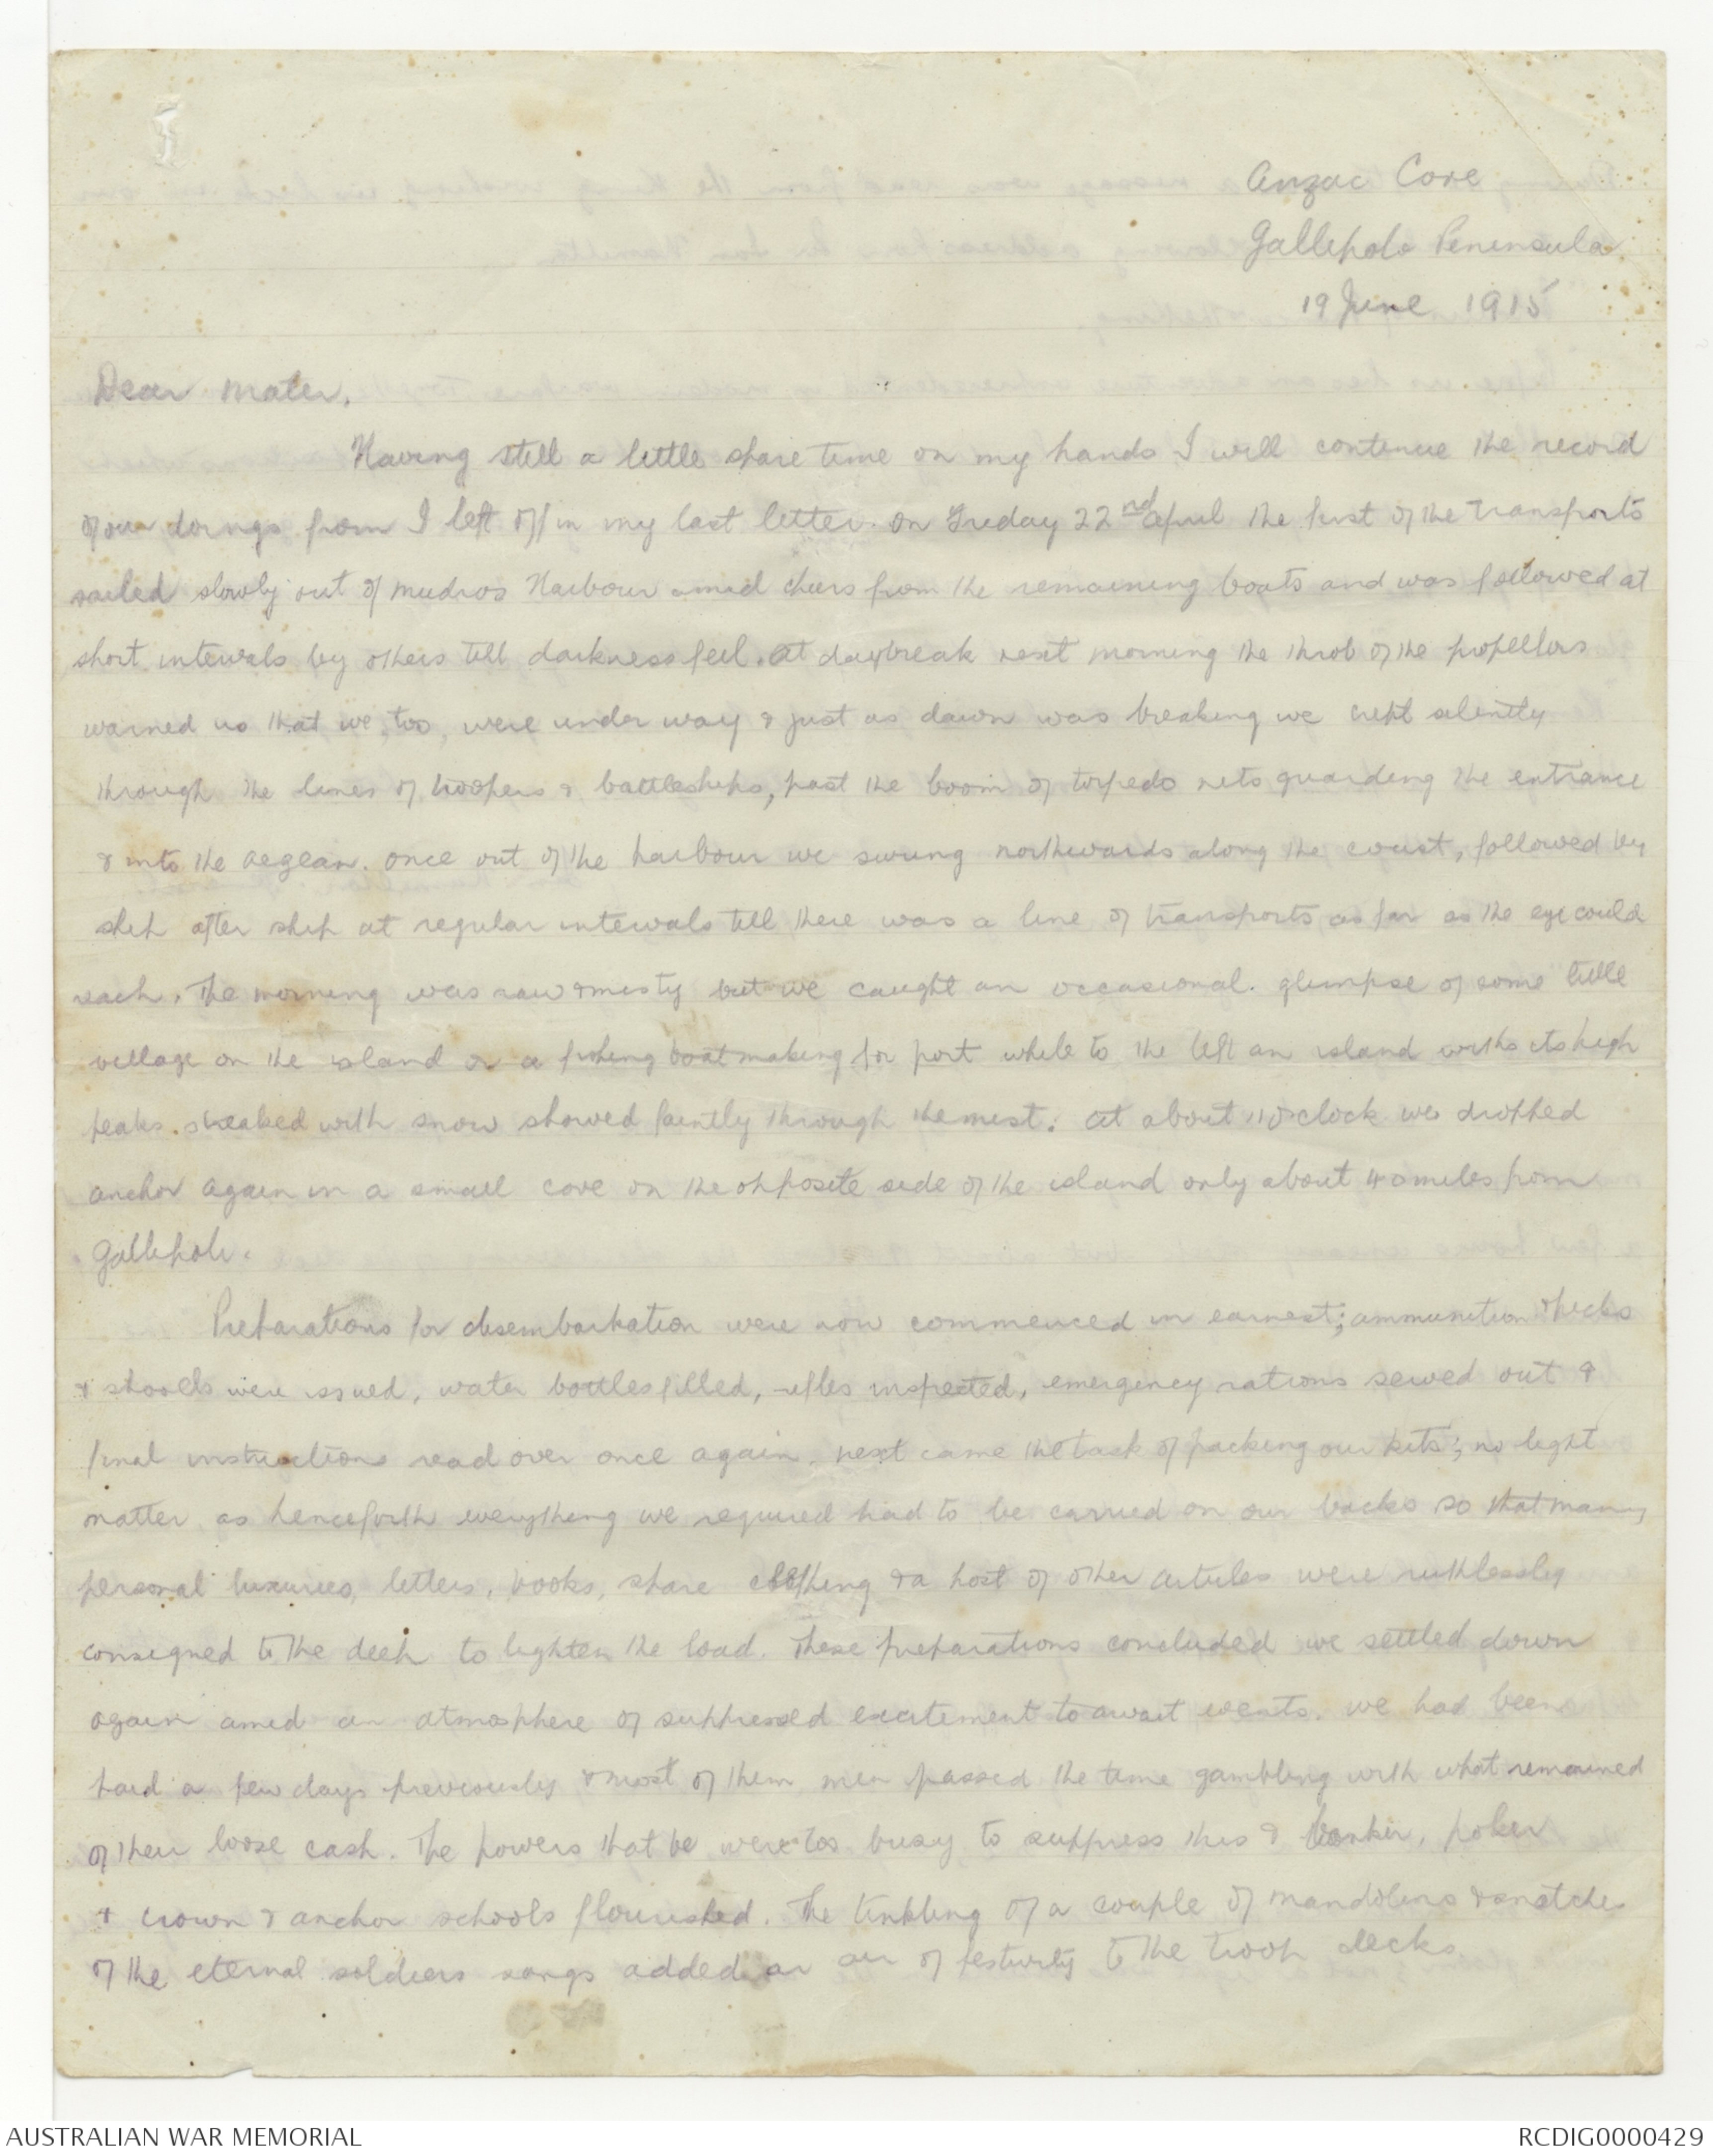 Anzac Cove
Gallipoli Peninsula
19 June 1915
Dear Mater,
Having still a little spare time on my hands I will continue the record
of our doings from I left off in my last letter. On Friday 22nd April the first of the transports
sailed slowly out of Mudros Harbour amid cheers from the remaining boats and was followed at
short intervals by others till darkness fell. At daybreak next morning the throb of the propellors
warned us that we, too, were under way & just as dawn was breaking we crept silently
through the lines of troopers & battleships, past the boom of torpedo nets guarding the entrance
& into the Aegean. Once out of the harbour we swung northwards along the coast, followed by
ship after ship at regular intervals till there was a line of transports as far as the eye could
reach. The morning was raw & misty but we caught an occasional glimpse of some little
village on the island or a fishing boat making for port while to the left an island with its high
peaks streaked with snow showed faintly through the mist. At about 11 o'clock we dropped
anchor again in a small cove on the opposite side of the island only about 40 miles from
Gallipoli.
Preparations for disembarkation were now commenced in earnest; ammunition & picks
& shovels were issued, water bottles filled, rifles inspected, emergency rations served out &
final instructions read over once again. Next came the task of packing our kits; no light
matter as henceforth everything we required had to be carried on our backs so that many
personal luxuries, letters, books, spare clothing & a host of other articles were ruthlessly
consigned to the deep to lighten the load. These preparations concluded we settled down
again amid an atmosphere of suppressed excitement to await events. We had been
paid a few days previously & most of them men passed the time gambling with what remained
of their loose cash. The powers that be were too busy to suppress this & banker, poker
& crown & anchor schools flourished. The tinkling of a couple of mandolins & snatches
of the eternal soldiers songs added an air of festivity to the troop decks.
AUSTRALIAN WAR MEMORIAL
RCDIG0000429